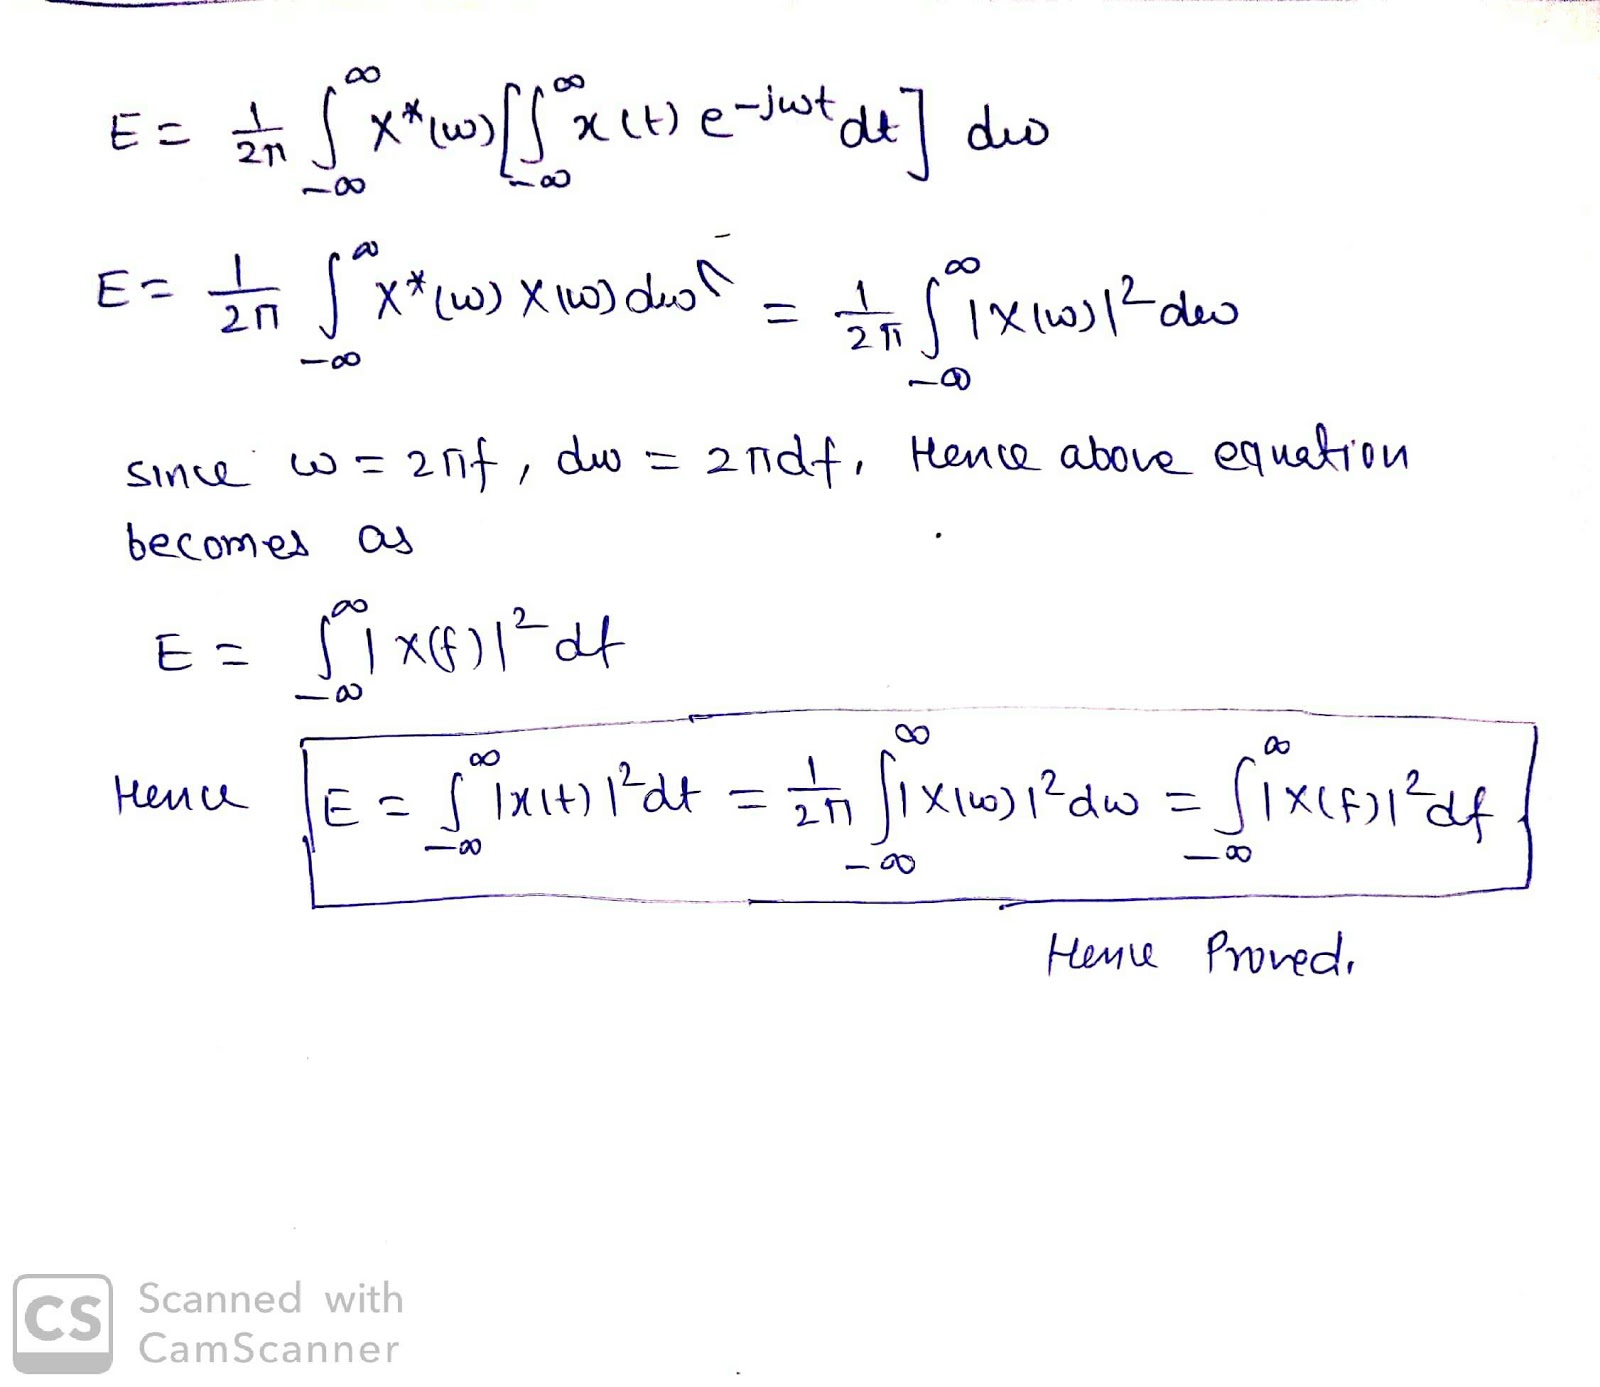 E = 1/2π ∫_{-∞}^{∞} X*(ω) [∫_{-∞}^{∞} x(t) e^{-jωt} dt] dω
E = 1/2π ∫_{-∞}^{∞} X*(ω) X(ω) dω = 1/2π ∫_{-∞}^{∞} |X(ω)|² dω
since ω = 2πf, dω = 2πdf. Hence above equation
becomes as
E = ∫_{-∞}^{∞} |X(f)|² df
Hence E = ∫_{-∞}^{∞} |x(t)|² dt = 1/2π ∫_{-∞}^{∞} |X(ω)|² dω = ∫_{-∞}^{∞} |X(f)|² df
Hence Proved.
CS Scanned with
CamScanner